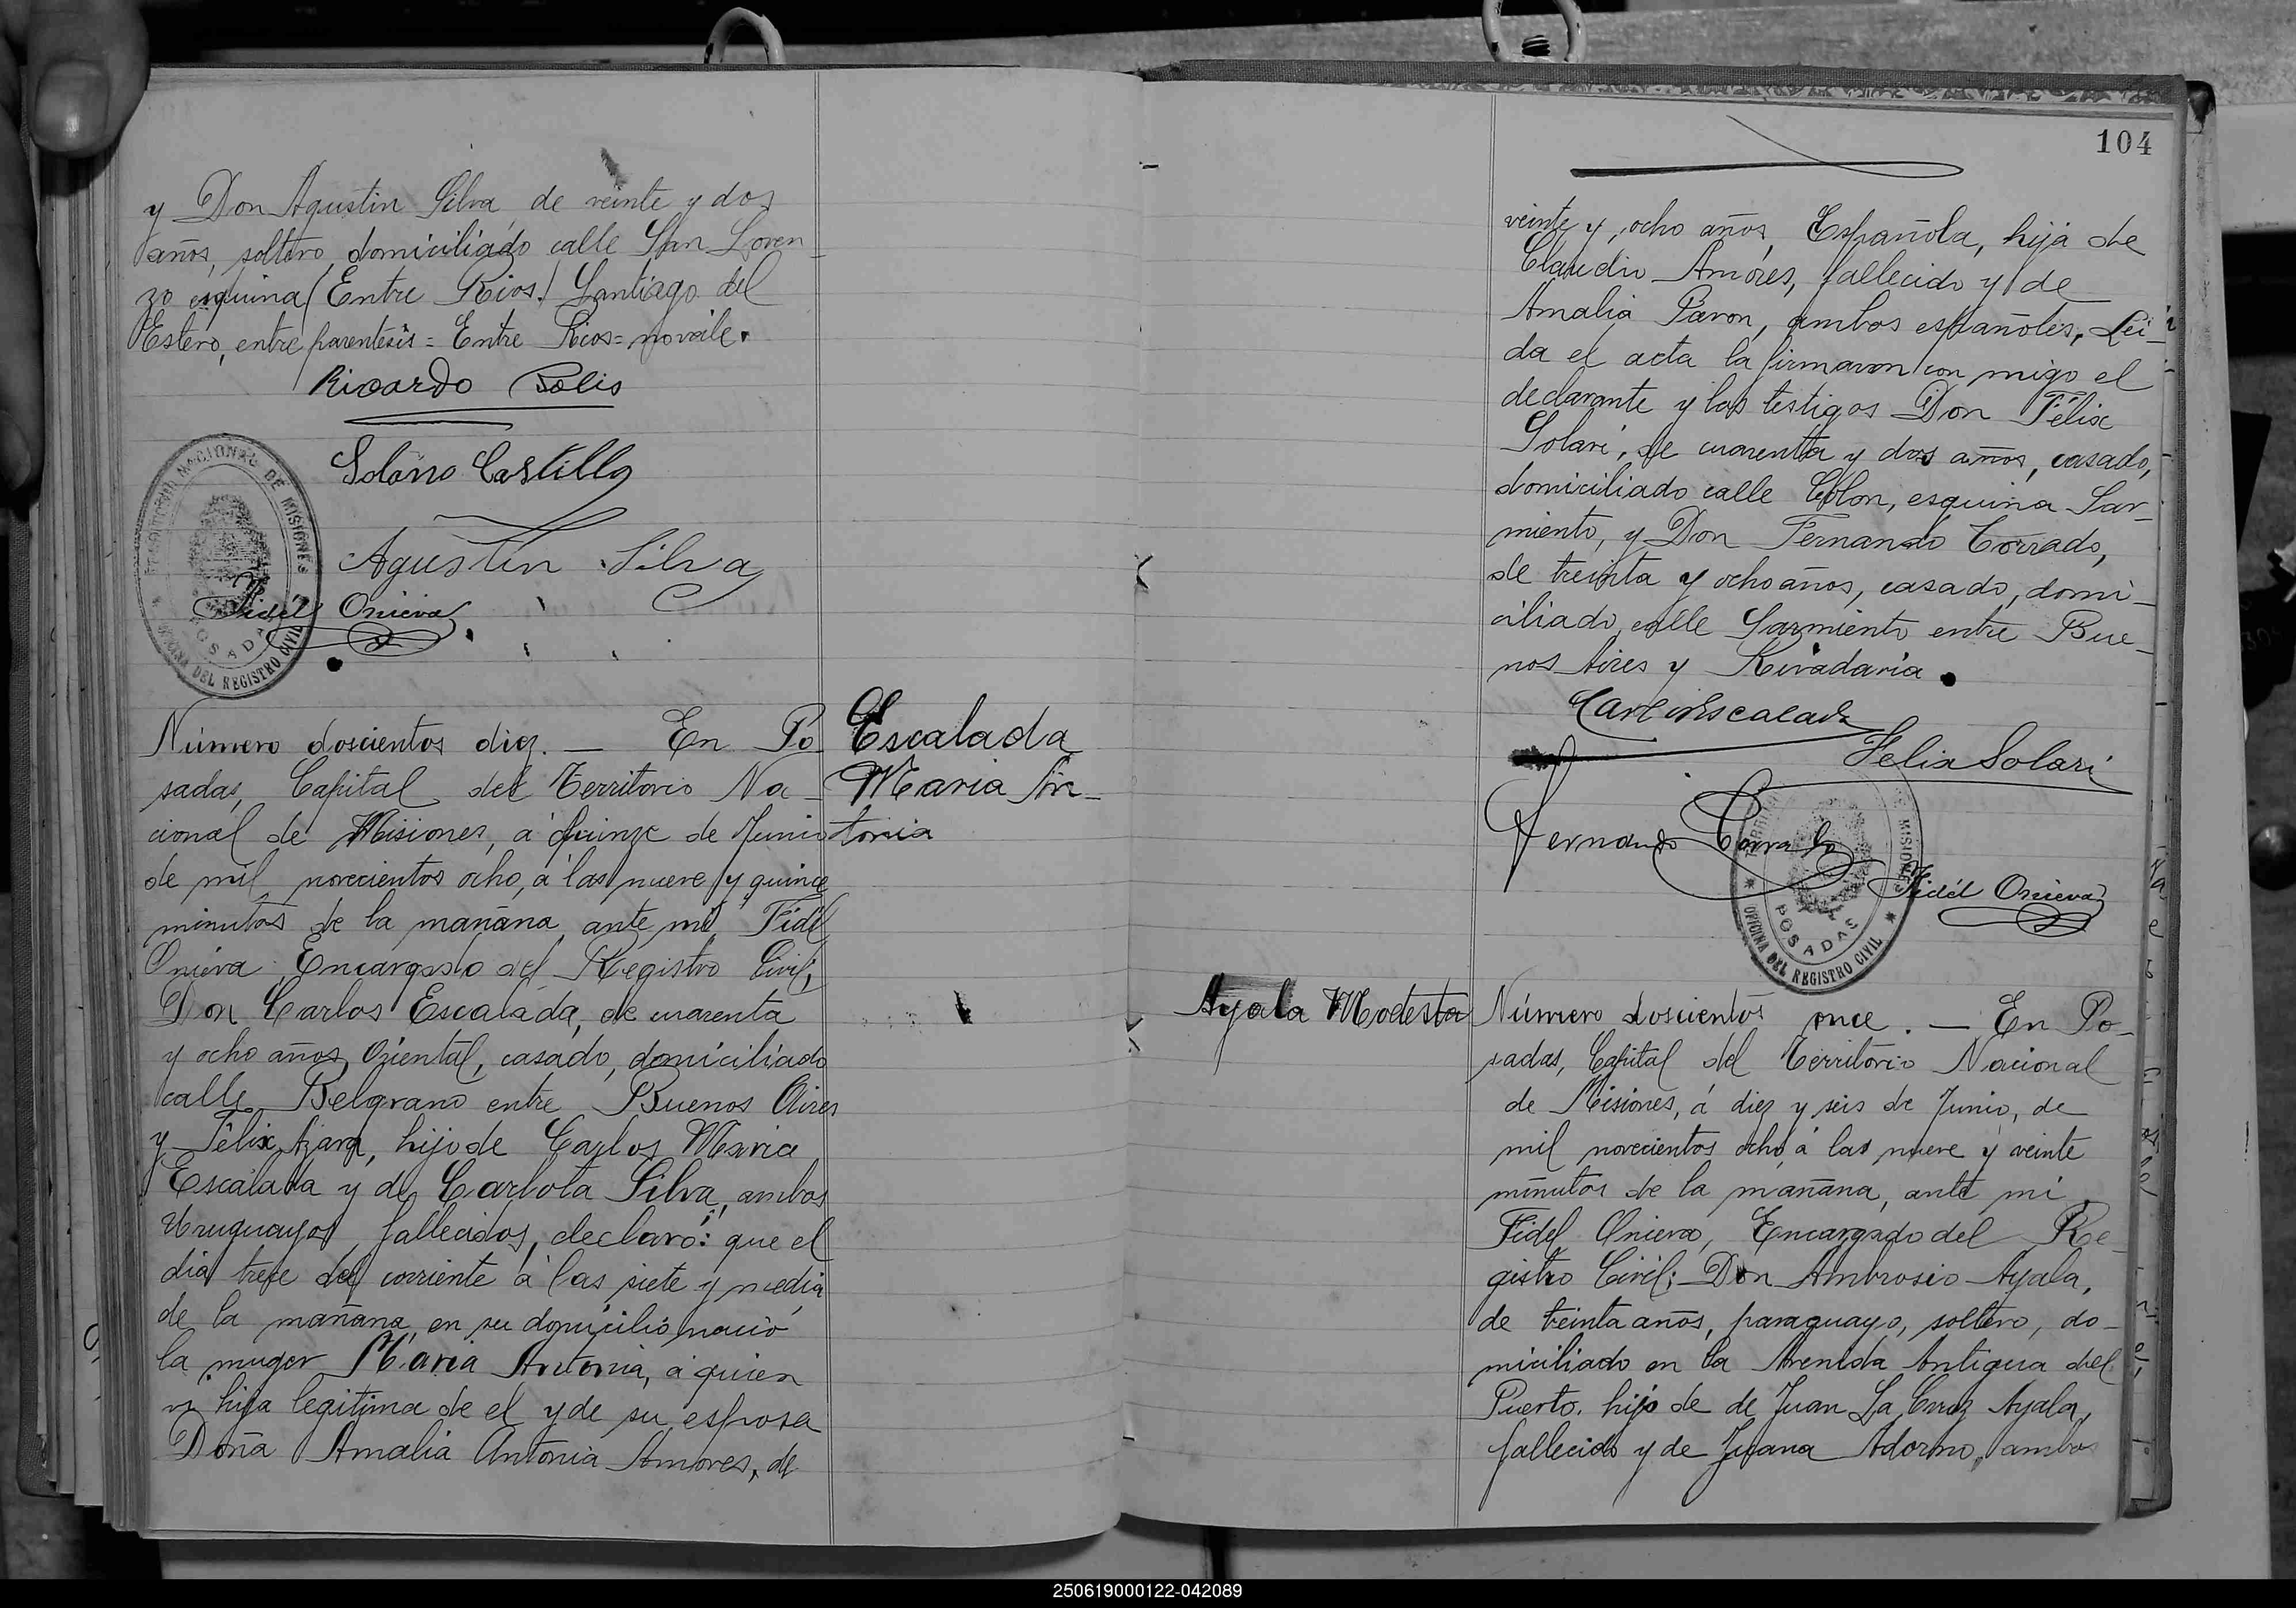 y Don Agustin Silva de veinte y dos
años, soltero, domiciliado calle San Loren-
zo esquina (Entre Rios) Santiago del
Estero, entre parentesis = Entre Rios = no vale.
Ricardo Solis
Solano Castillo
Agustin Silva
TERRITORIO NACIONAL DE MISIONES
POSADAS
OFICINA DEL REGISTRO CIVIL
Fidel Onieva
Número doscientos diez. — En Po-
sadas, Capital del Territorio Na-
cional de Misiones, á quinze de Junio
de mil novecientos ocho, á las nueve y quince
minutos de la mañana, ante mi, Fidel
Onieva Encargado del Registro Civil;
Don Carlos Escalada, de cuarenta
y ocho años, Oriental, casado, domiciliado
calle Belgrano entre Buenos Aires
y Félix Azara, hijo de Carlos Maria
Escalada y de Carlota Silva, ambos
Uruguayos, fallecidos, declaró: que el
dia trece del corriente á las siete y media
de la mañana, en su domicilio nació
la muger Maria Antonia, á quien
vi hija legitima de el y de su esposa
Doña Amalia Antonia Amores, de
Escalada
Maria An-
tonia
104
veinte y ocho años, Española, hija de
Claudio Amores, fallecido y de
Amalia Pavon, ambos españoles. Lei-
da el acta la firmaron con migo el
declarante y los testigos Don Félix
Solari, de cuarenta y dos años, casado,
domiciliado calle Colon, esquina Sar-
miento, y Don Fernando Corrado,
de treinta y ocho años, casado, domi-
ciliado calle Sarmiento entre Bue-
nos Aires y Rivadavia.
Carlos Escalada
Felix Solari
Fernando Corrado
Fidel Onieva
MISIONES
POSADAS
OFICINA DEL REGISTRO CIVIL
Ayala Modesta
Número doscientos once. — En Po-
sadas, Capital del Territorio Nacional
de Misiones, á diez y seis de Junio, de
mil novecientos ocho, á las nueve y veinte
minutos de la mañana, ante mi,
Fidel Onieva, Encargado del Re-
gistro Civil; Don Ambrosio Ayala,
de treinta años, paraguayo, soltero, do-
miciliado en la Avenida Antigua del
Puerto, hijo de de Juan La Cruz Ayala,
fallecido y de Juana Adorno, ambos
250619000122-042089